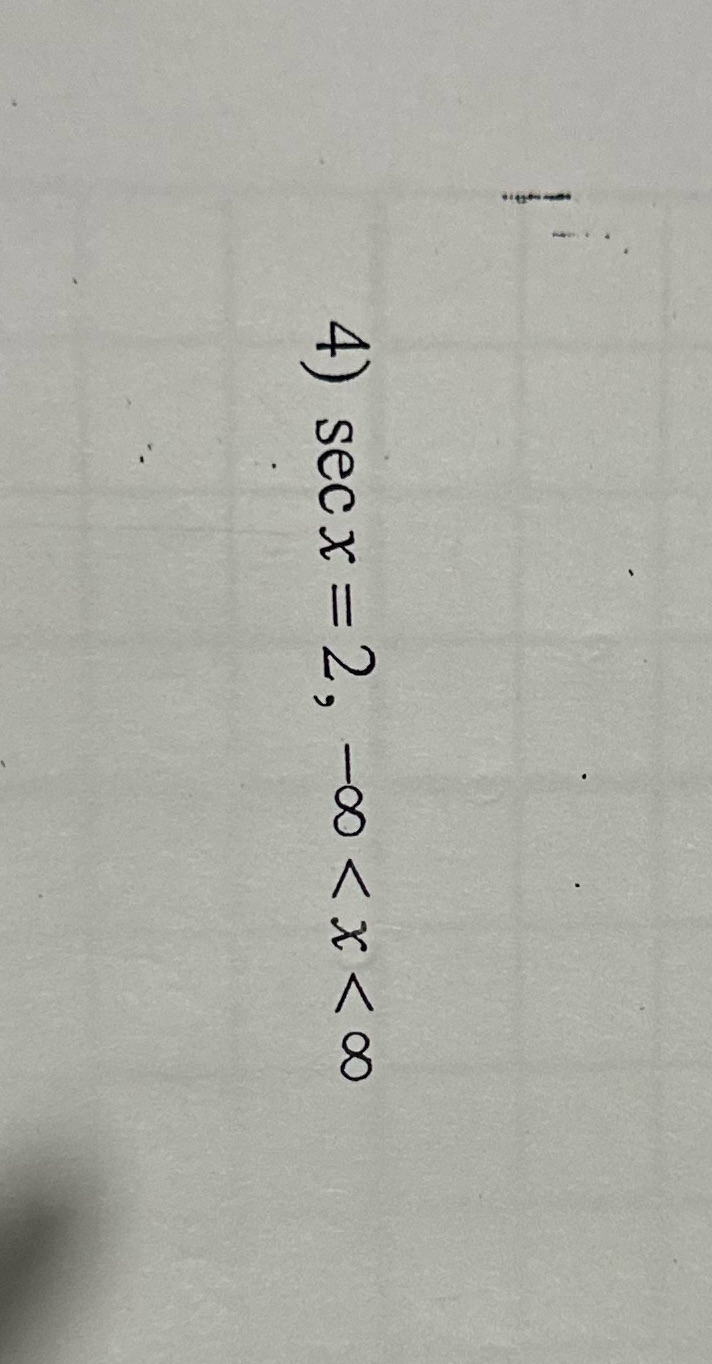 4) sec x = 2, −∞ < x < ∞